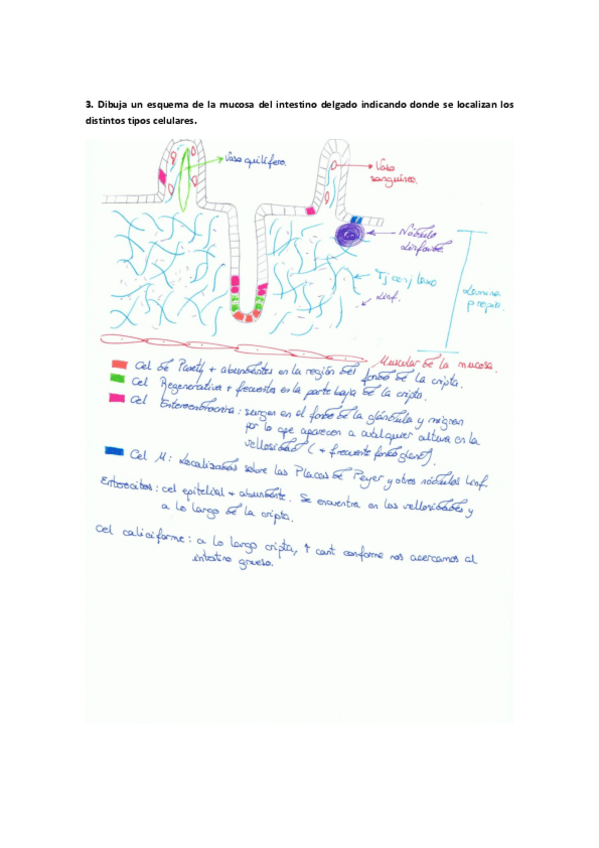 3. Dibuja un esquema de la mucosa del intestino delgado indicando donde se localizan los
distintos tipos celulares.
Vaso quilífero.
Vaso
sanguíneo.
Nódulo
linfoide.
Tj conj laxo
linf.
Lamina
propia
Muscular de la mucosa.
Cel de Paneth + abundantes en la región del fondo de la cripta.
Cel Regenerativa + frecuentes en la parte baja de la cripta.
Cel Enteroendocrina: surgen en el fondo de la glándula y migran
por lo que aparecen a cualquier altura en la
vellosidad (+ frecuente fondo gland).
Cel M: Localizadas sobre las Placas de Peyer y otros nódulos linf.
Enterocitos: cel epitelial + abundante. Se encuentra en las vellosidades y
a lo largo de la cripta.
Cel caliciforme: a lo largo cripta, ↑ cant conforme nos acercamos al
intestino grueso.